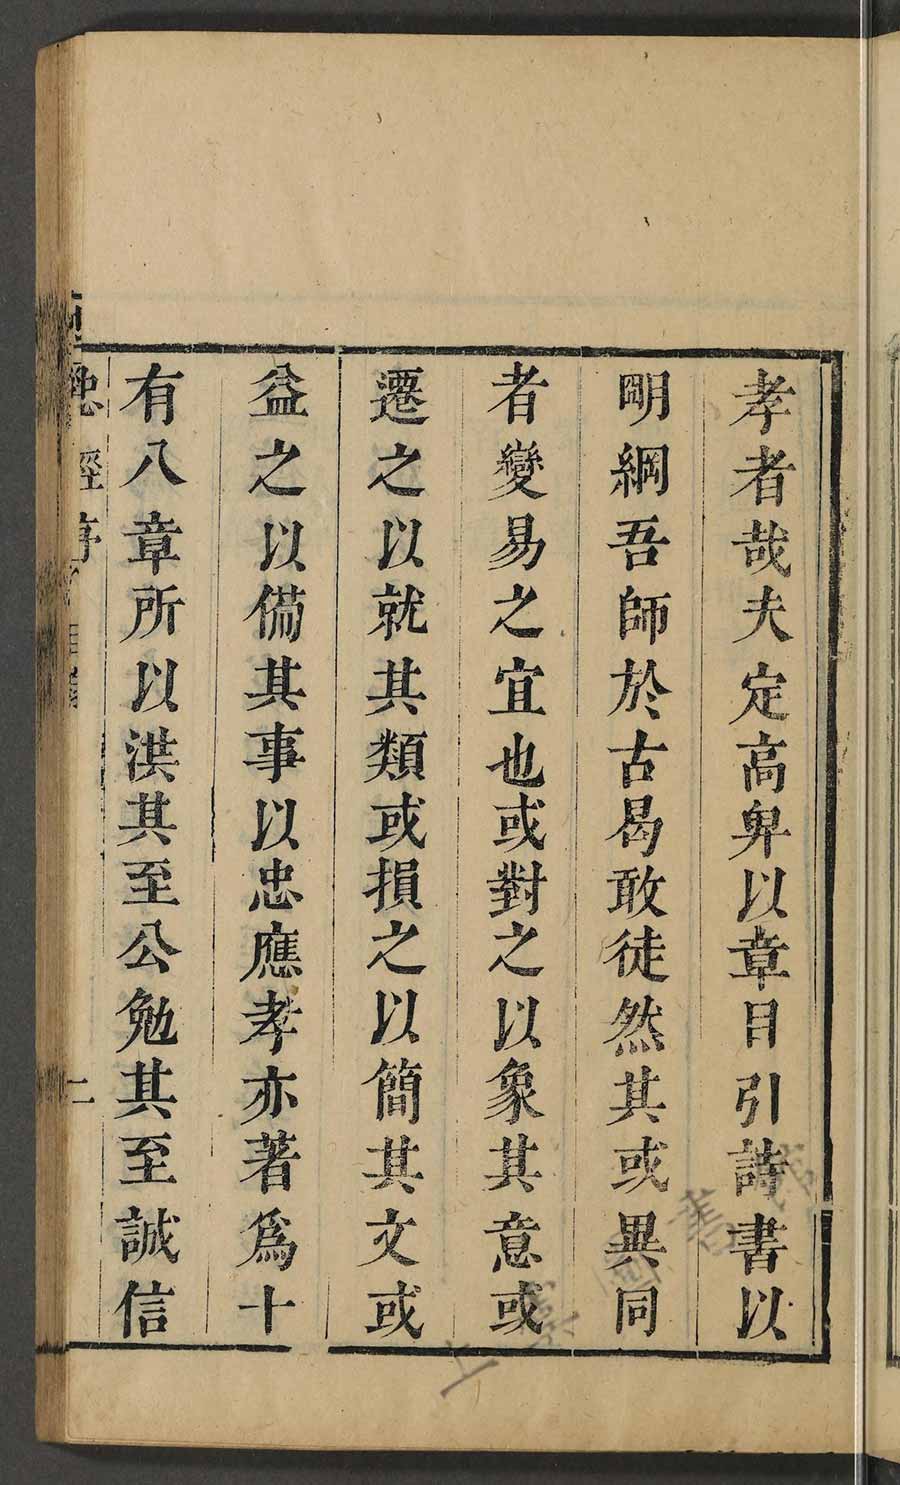 孝者哉夫定高卑以章目引詩書以
明綱吾師於古曷敢徒然其或異同
者變易之宜也或對之以象其意或
遷之以就其類或損之以簡其文或
益之以備其事以忠應孝亦著爲十
有八章所以洪其至公勉其至誠信
忠經序
二